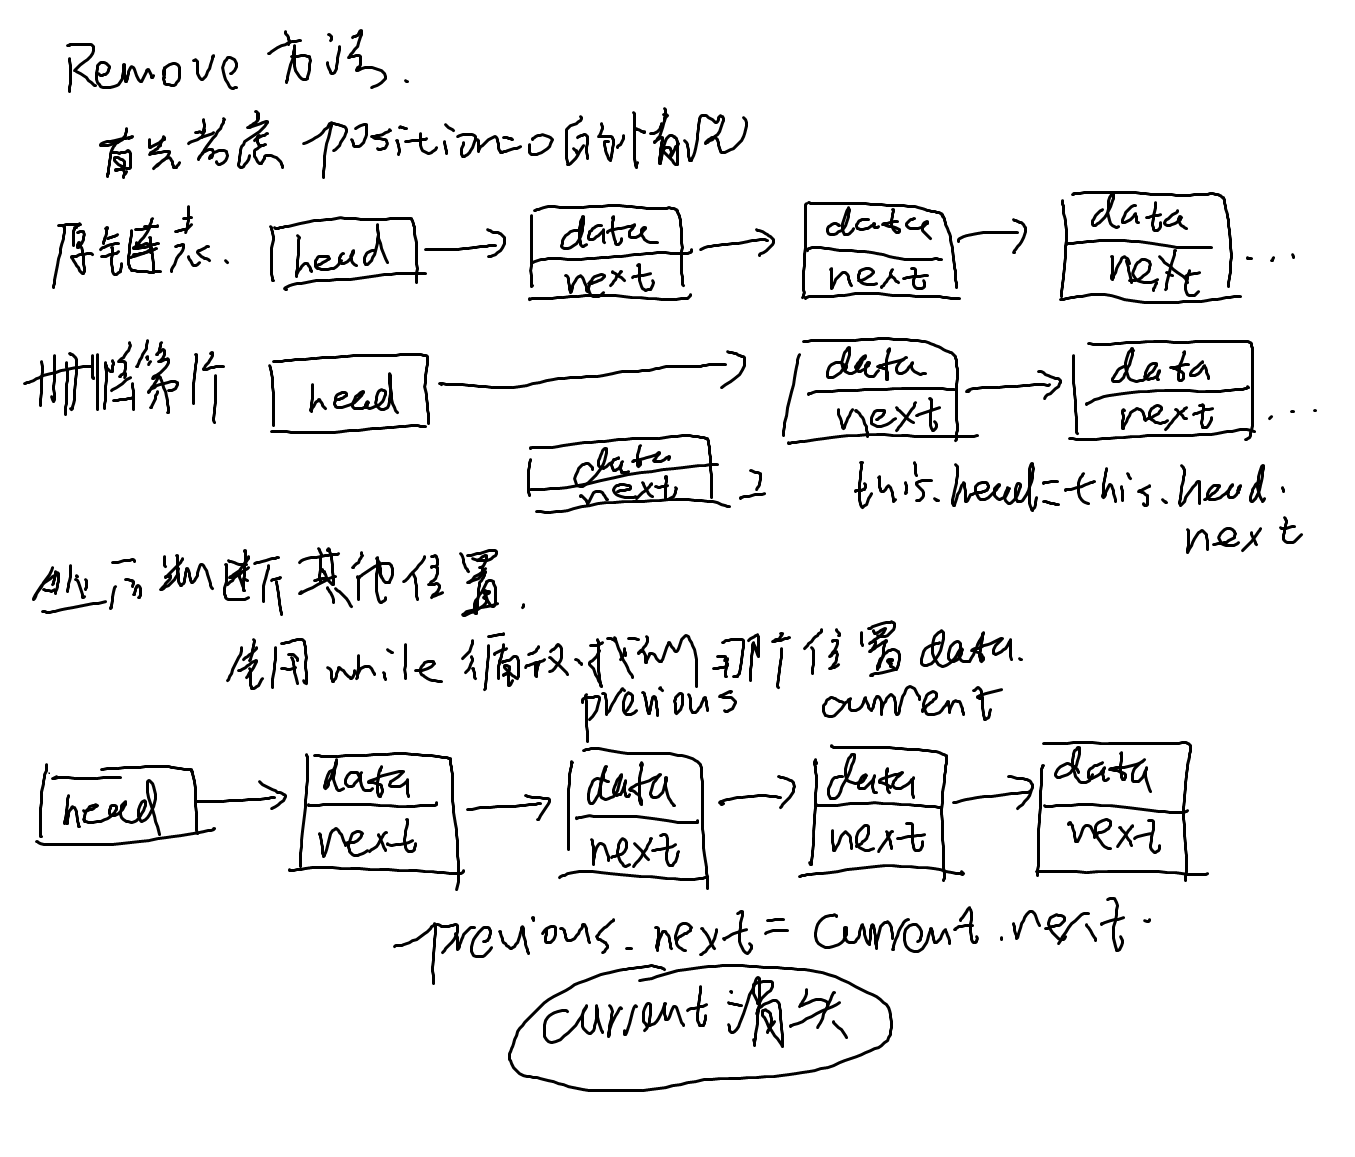 Remove 方法.
首先考虑 position=0的情况
原链表. head data next data next data next ...
删除第1个 head data next data next ...
data next
this.head=this.head.
next
然后判断其他位置.
使用while循环找到那个位置data.
previous current
head data next data next data next data next
previous.next = current.next.
current消失